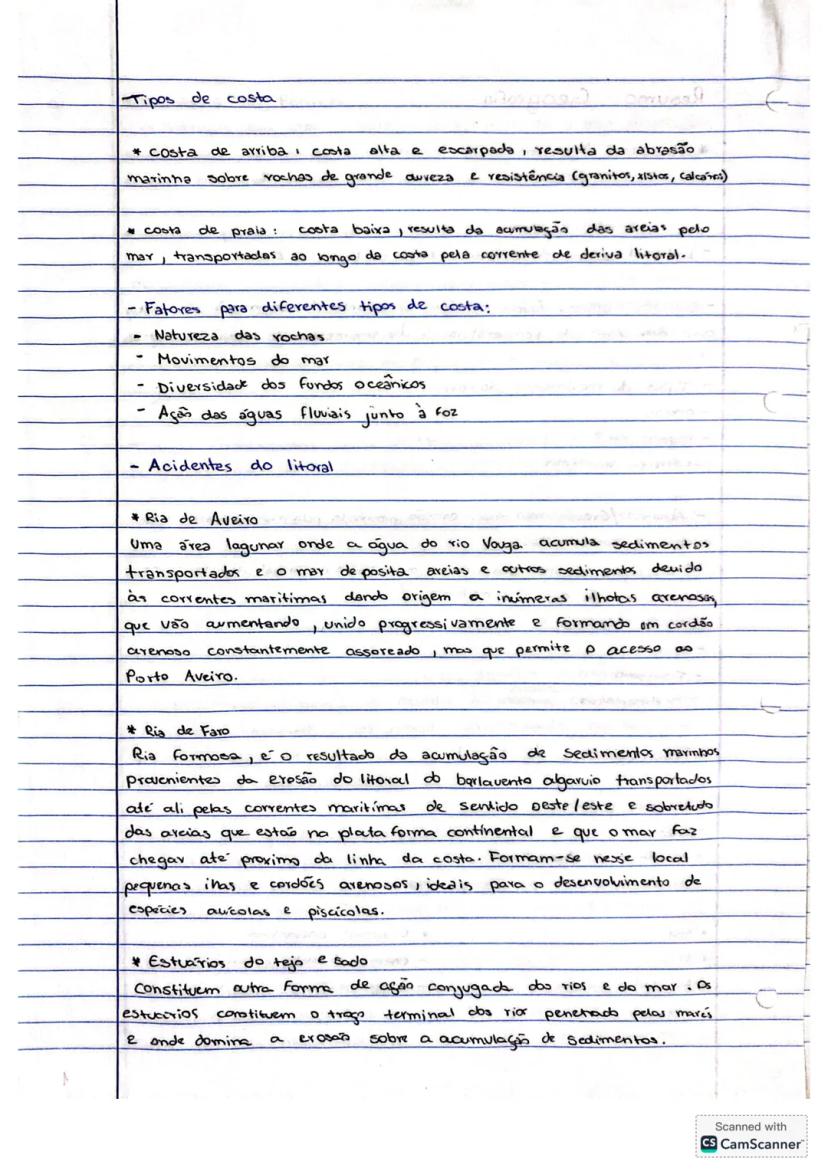 Tipos de costa
* costa de arriba: costa alta e escarpada, resulta da abrasão
marinha sobre rochas de grande dureza e resistência (granitos, xistos, calcários)
* costa de praia: costa baixa, resulta da acumulação das areias pelo
mar, transportadas ao longo da costa pela corrente de deriva litoral.
- Fatores para diferentes tipos de costa:
- Natureza das rochas
- Movimentos do mar
- Diversidade dos fundos oceânicos
- Ação das águas fluviais junto à foz
- Acidentes do litoral
* Ria de Aveiro
Uma área lagunar onde a água do rio Vouga acumula sedimentos
transportados e o mar deposita areias e outros sedimentos devido
às correntes maritimas dando origem a inúmeras ilhotas arenosas,
que vão aumentando, unido progressivamente e formando um cordão
arenoso constantemente assoreado, mas que permite o acesso ao
Porto Aveiro.
* Ria de Faro
Ria formosa, é o resultado da acumulação de sedimentos marinhos
provenientes da erosão do litoral do barlavento algarvio transportados
até ali pelas correntes maritímas de sentido oeste/este e sobretudo
das areias que estão na plataforma continental e que o mar faz
chegar até proximo da linha da costa. Formam-se nesse local
pequenas ihas e cordões arenosos, ideais para o desenvolvimento de
espécies avícolas e piscícolas.
* Estuários do tejo e sado
Constituem outra forma de ação conjugada dos rios e do mar. Os
estuários constituem o troço terminal dos rios penetrado pelas marés
e onde domina a erosão sobre a acumulação de sedimentos.
Scanned with
CS CamScanner